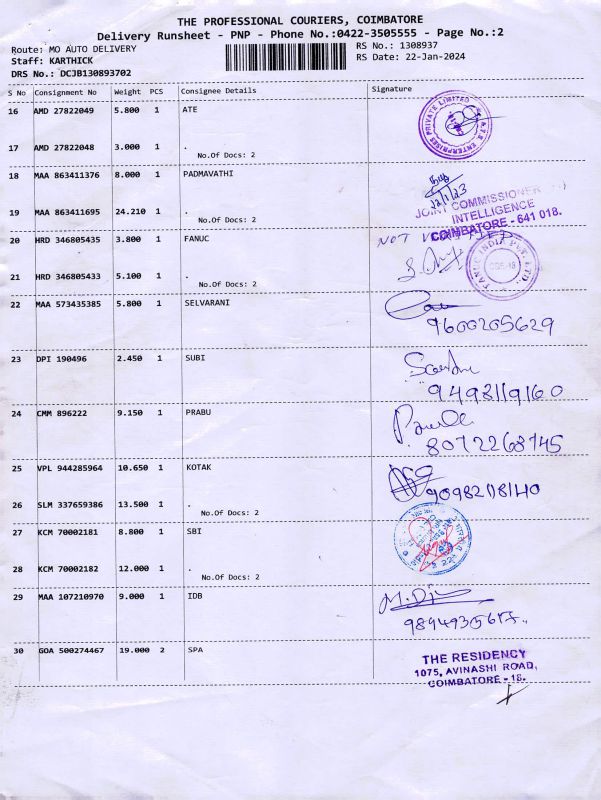 THE PROFESSIONAL COURIERS, COIMBATORE
Delivery Runsheet - PNP - Phone No.:0422-3505555 - Page No.:2
Route: MO AUTO DELIVERY
Staff: KARTHICK
DRS No.: DCJB130893702
RS No.: 1308937
RS Date: 22-Jan-2024
S No Consignment No Weight PCS Consignee Details Signature
16 AMD 27822049 5.800 1 ATE
ENTERPRISES PRIVATE LIMITED
17 AMD 27822048 3.000 1 .
No.Of Docs: 2
18 MAA 863411376 8.000 1 PADMAVATHI
22/1/23
JOINT COMMISSIONER
INTELLIGENCE
COIMBATORE - 641 018.
19 MAA 863411695 24.210 1 .
20 HRD 346805435 3.800 1 FANUC
NOT VERIFIED
FANUC INDIA PVT. LTD.
21 HRD 346805433 5.100 1 .
No.Of Docs: 2
22 MAA 573435385 5.800 1 SELVARANI
9600205629
23 DPI 190496 2.450 1 SUBI
9498119160
24 CMM 896222 9.150 1 PRABU
8072268745
25 VPL 944285964 10.650 1 KOTAK
26 SLM 337659386 13.500 1 .
No.Of Docs: 2
27 KCM 70002181 8.800 1 SBI
28 KCM 70002182 12.000 1 .
No.Of Docs: 2
29 MAA 107210970 9.000 1 IDB
30 GOA 500274467 19.000 2 SPA
THE RESIDENCY
1075, AVINASHI ROAD,
COIMBATORE - 18.